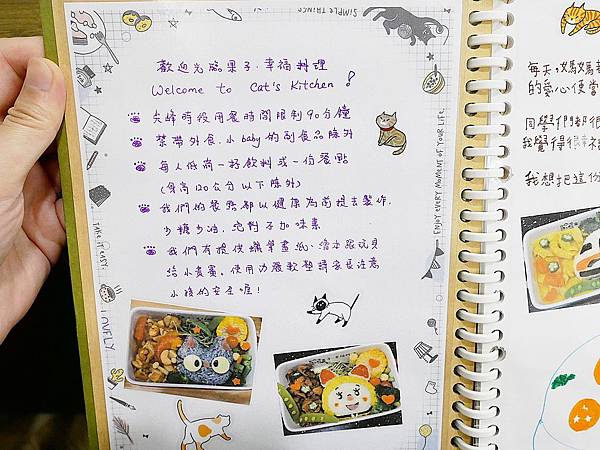 SIMPLE THINGS
歡迎光臨果子.幸福料理
Welcome to Cat's Kitchen!
尖峰時段用餐時間限制90分鐘
禁帶外食,小baby的副食品除外
每人低消一杯飲料或一份餐點
(身高120公分以下除外)
我們的餐點都以健康為前提去製作,
少糖少油,絕對不加味素
我們有提供蠟筆畫紙、潛水艇玩具
給小貴賓,使用
軟墊請家長注意
小孩的安全喔!
ENJOY EVERY MOMENT OF YOUR LIFE.
TAKE IT EASY.
LOVELY
每天,媽媽
的愛心便當
同學們都很
我覺得很幸
我想把這份